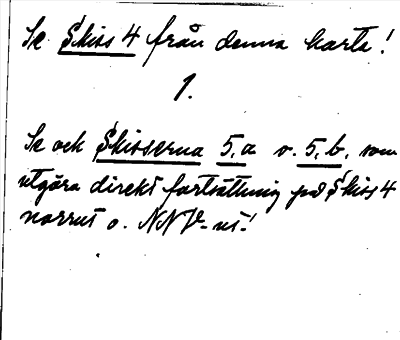 Se Skiss 4 från denna karta!
1.
Se och Skisserna 5.a o. 5.b. som
utgöra direkt fortsättning på Skiss 4
norrut o. NNV-ut!